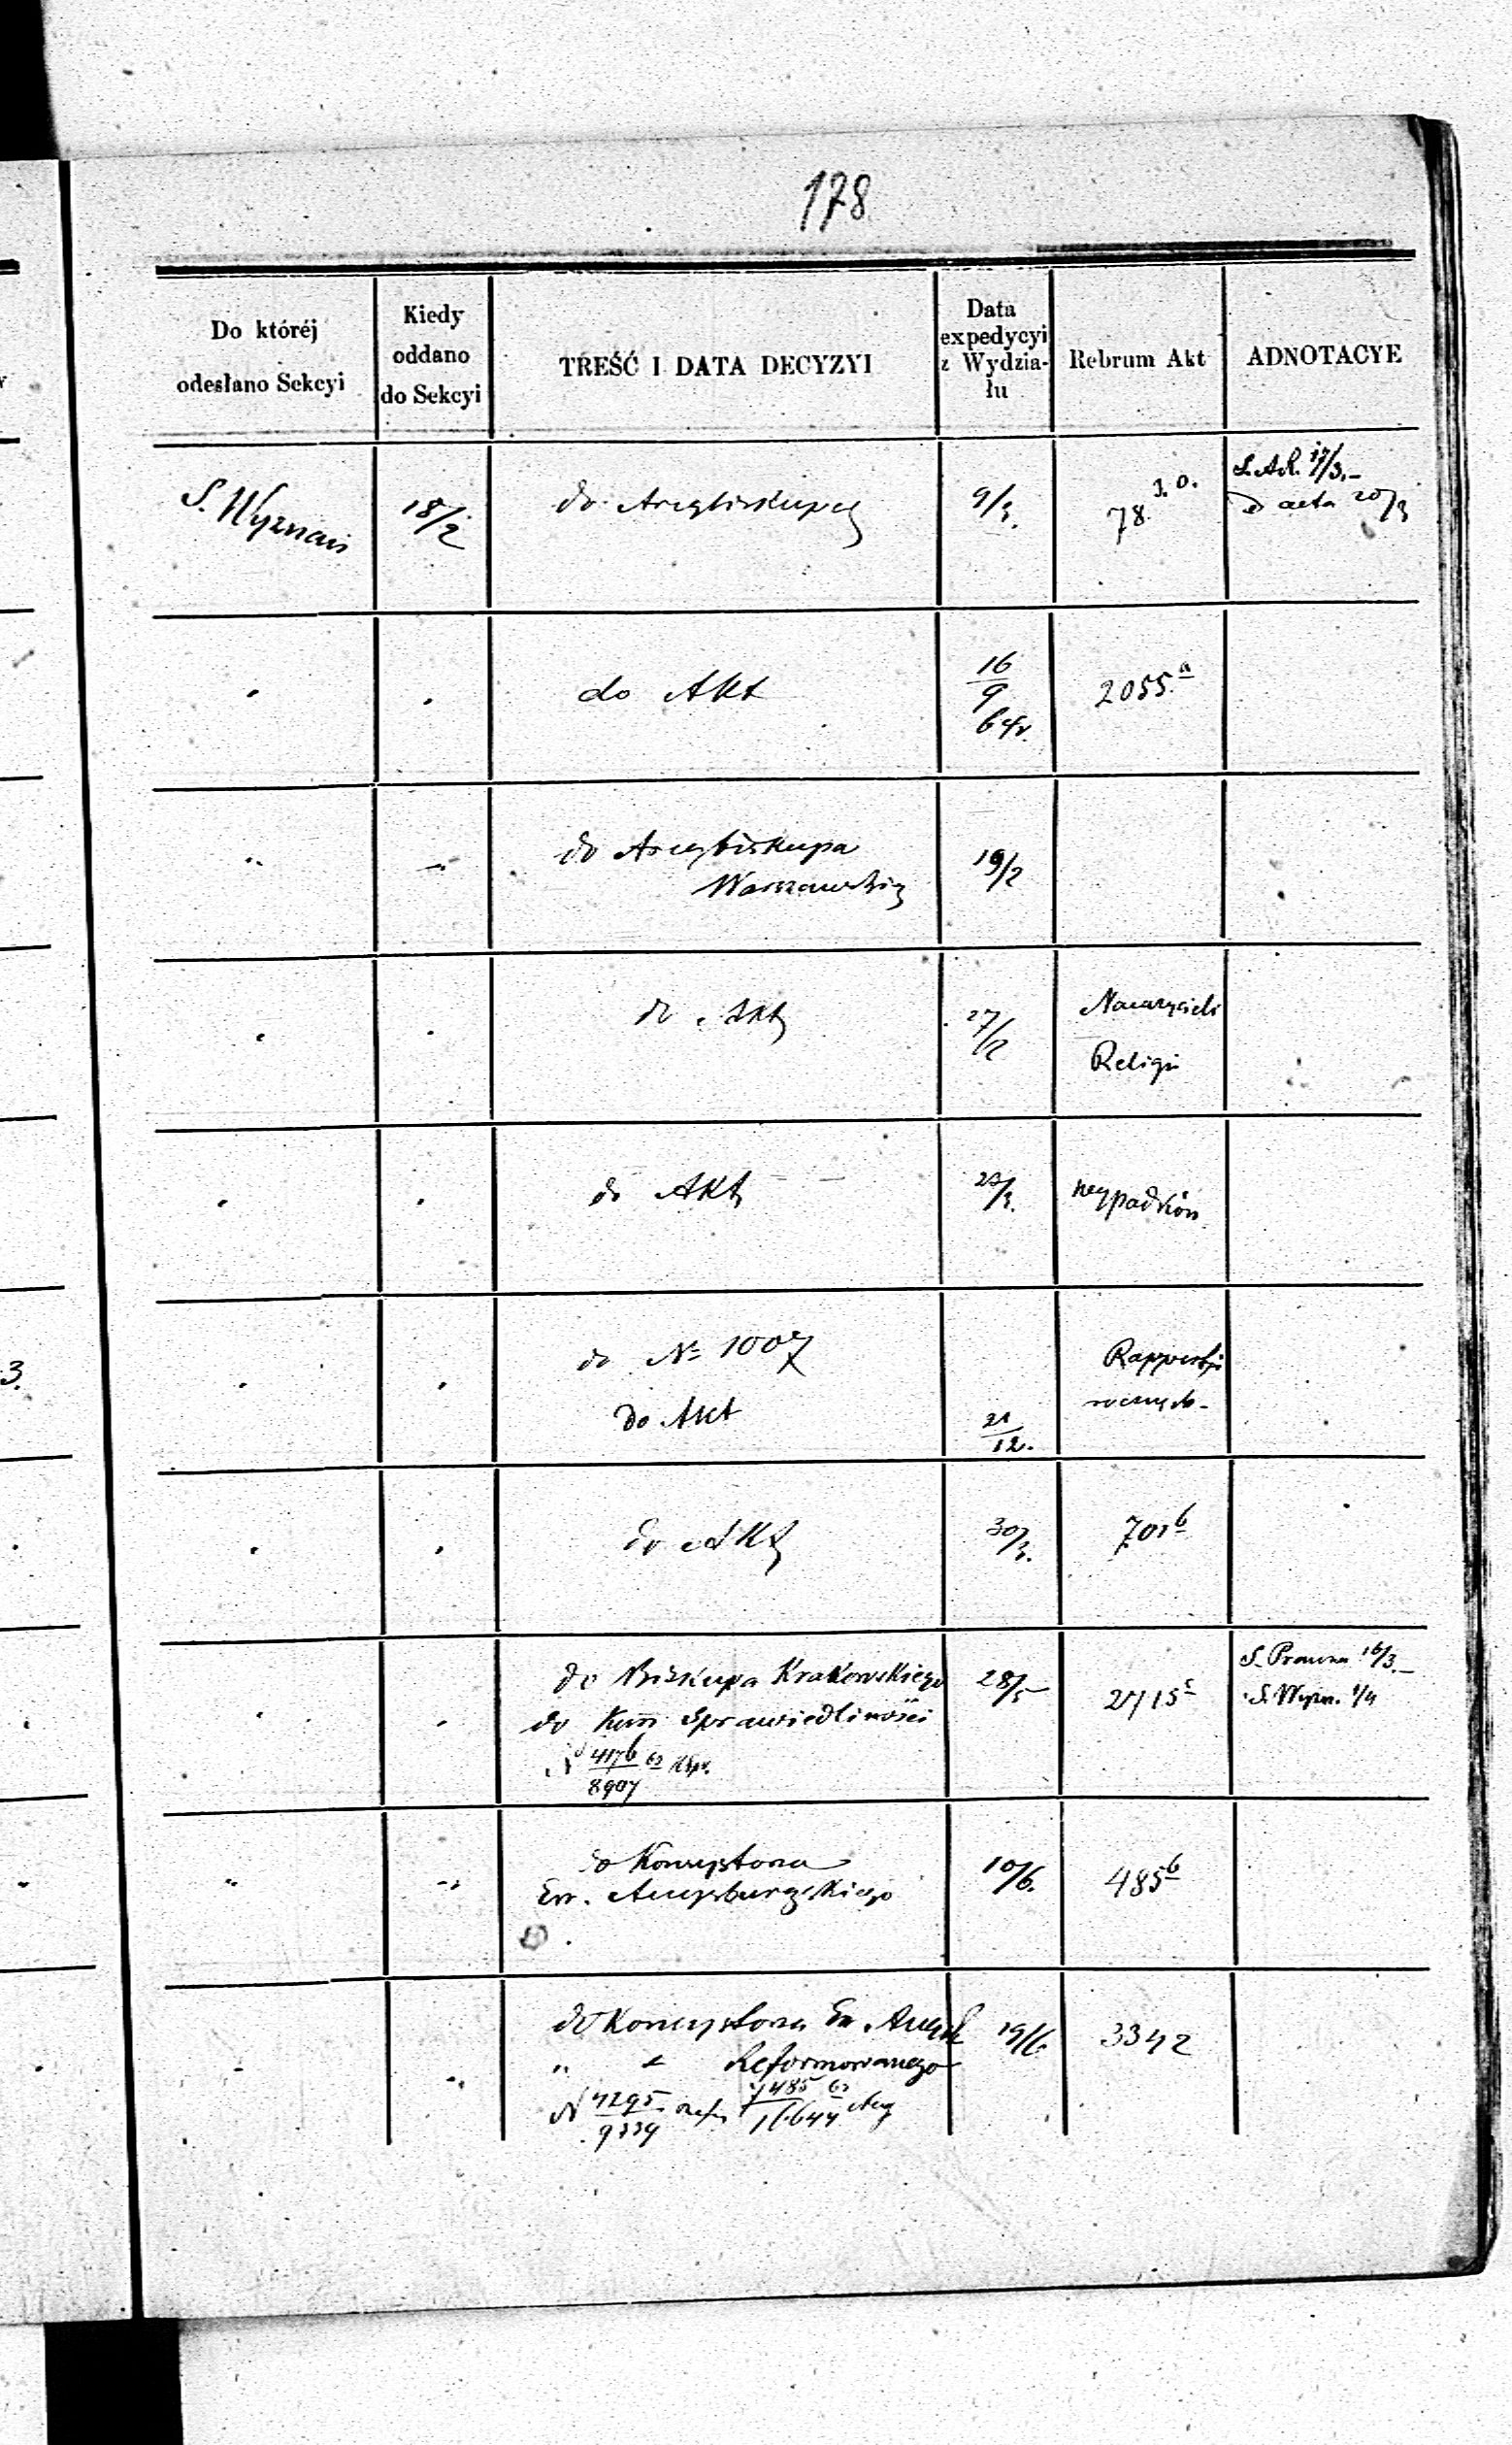 178
Do któréj
odesłano Sekcyi
Kiedy
oddano
do Sekcyi
TREŚĆ I DATA DECYZYI
Data
expedycyi
z Wydzia-
łu
Rebrum Akt
ADNOTACYE
S. Wyznań
18/2
do Arcybiskupa
9/3.
78.
17/3.
acta 20/3
do Akt
16/9
2055 a
do Arcybiskupa
Warszawskig
19/2
do Akt
27/2
Nauczycieli
Religii
do Akt
wypadków
do № 1007
do Akt
21/12.
Rapporta
rocznych
do Akt
30/3.
701 b
do Biskupa Krakowskiego
do Kom Sprawiedliwości
N 4176/8907
28/5
2715 c
S. Prawna 16/3.
S. Wyzn. 1/4
do Konsystorza
Ew. Augsburgskiego
10/6.
485 b
do Konsystorza Ew. Augsb
" " Reformowanego
N 4295/9339 7485/16644
19/6.
3342